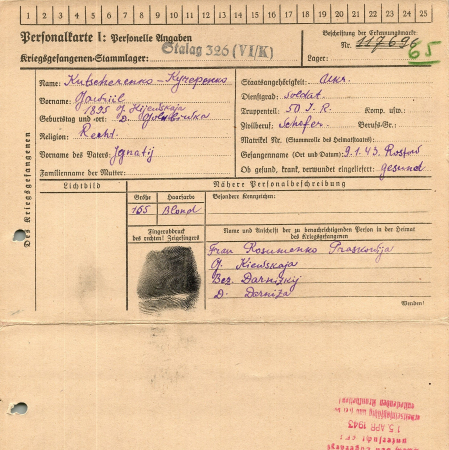 1 2 3 4 5 6 7 8 9 10 11 12 13 14 15 16 17 18 19 20 21 22 23 24 25
Personalkarte I: Personelle Angaben
Kriegsgefangenen-Stammlager: Stalag 326 (VI/K)
Beschriftung der Erkennungsmarke
Nr. 117696
Lager: 65
Des Kriegsgefangenen
Name: Kutscherenko-Кучеренко
Vorname: Gawriil
Geburtstag und -ort: 1895 G. Kijewskaja
D. Golubowka
Religion: Recht.
Vorname des Vaters: Ignatij
Familienname der Mutter:
Staatsangehörigkeit: Ukr.
Dienstgrad: Soldat.
Truppenteil: 50 I.R. Komp. usw.:
Zivilberuf: Schefer. Berufs-Gr.:
Matrikel Nr. (Stammrolle des Heimatstaates):
Gefangennahme (Ort und Datum): 9.1.43. Rostow
Ob gesund, krank, verwundet eingeliefert: gesund
Lichtbild
Nähere Personalbeschreibung
Größe Haarfarbe Besondere Kennzeichen:
165 Blond
Fingerabdruck
des rechten! Zeigefingers
Name und Anschrift der zu benachrichtigenden Person in der Heimat
des Kriegsgefangenen
Frau Kosumenko Praskowja
G. Kiewskaja
Bez. Darnizkij
D. Darniza
Wenden!
15. APR. 1943